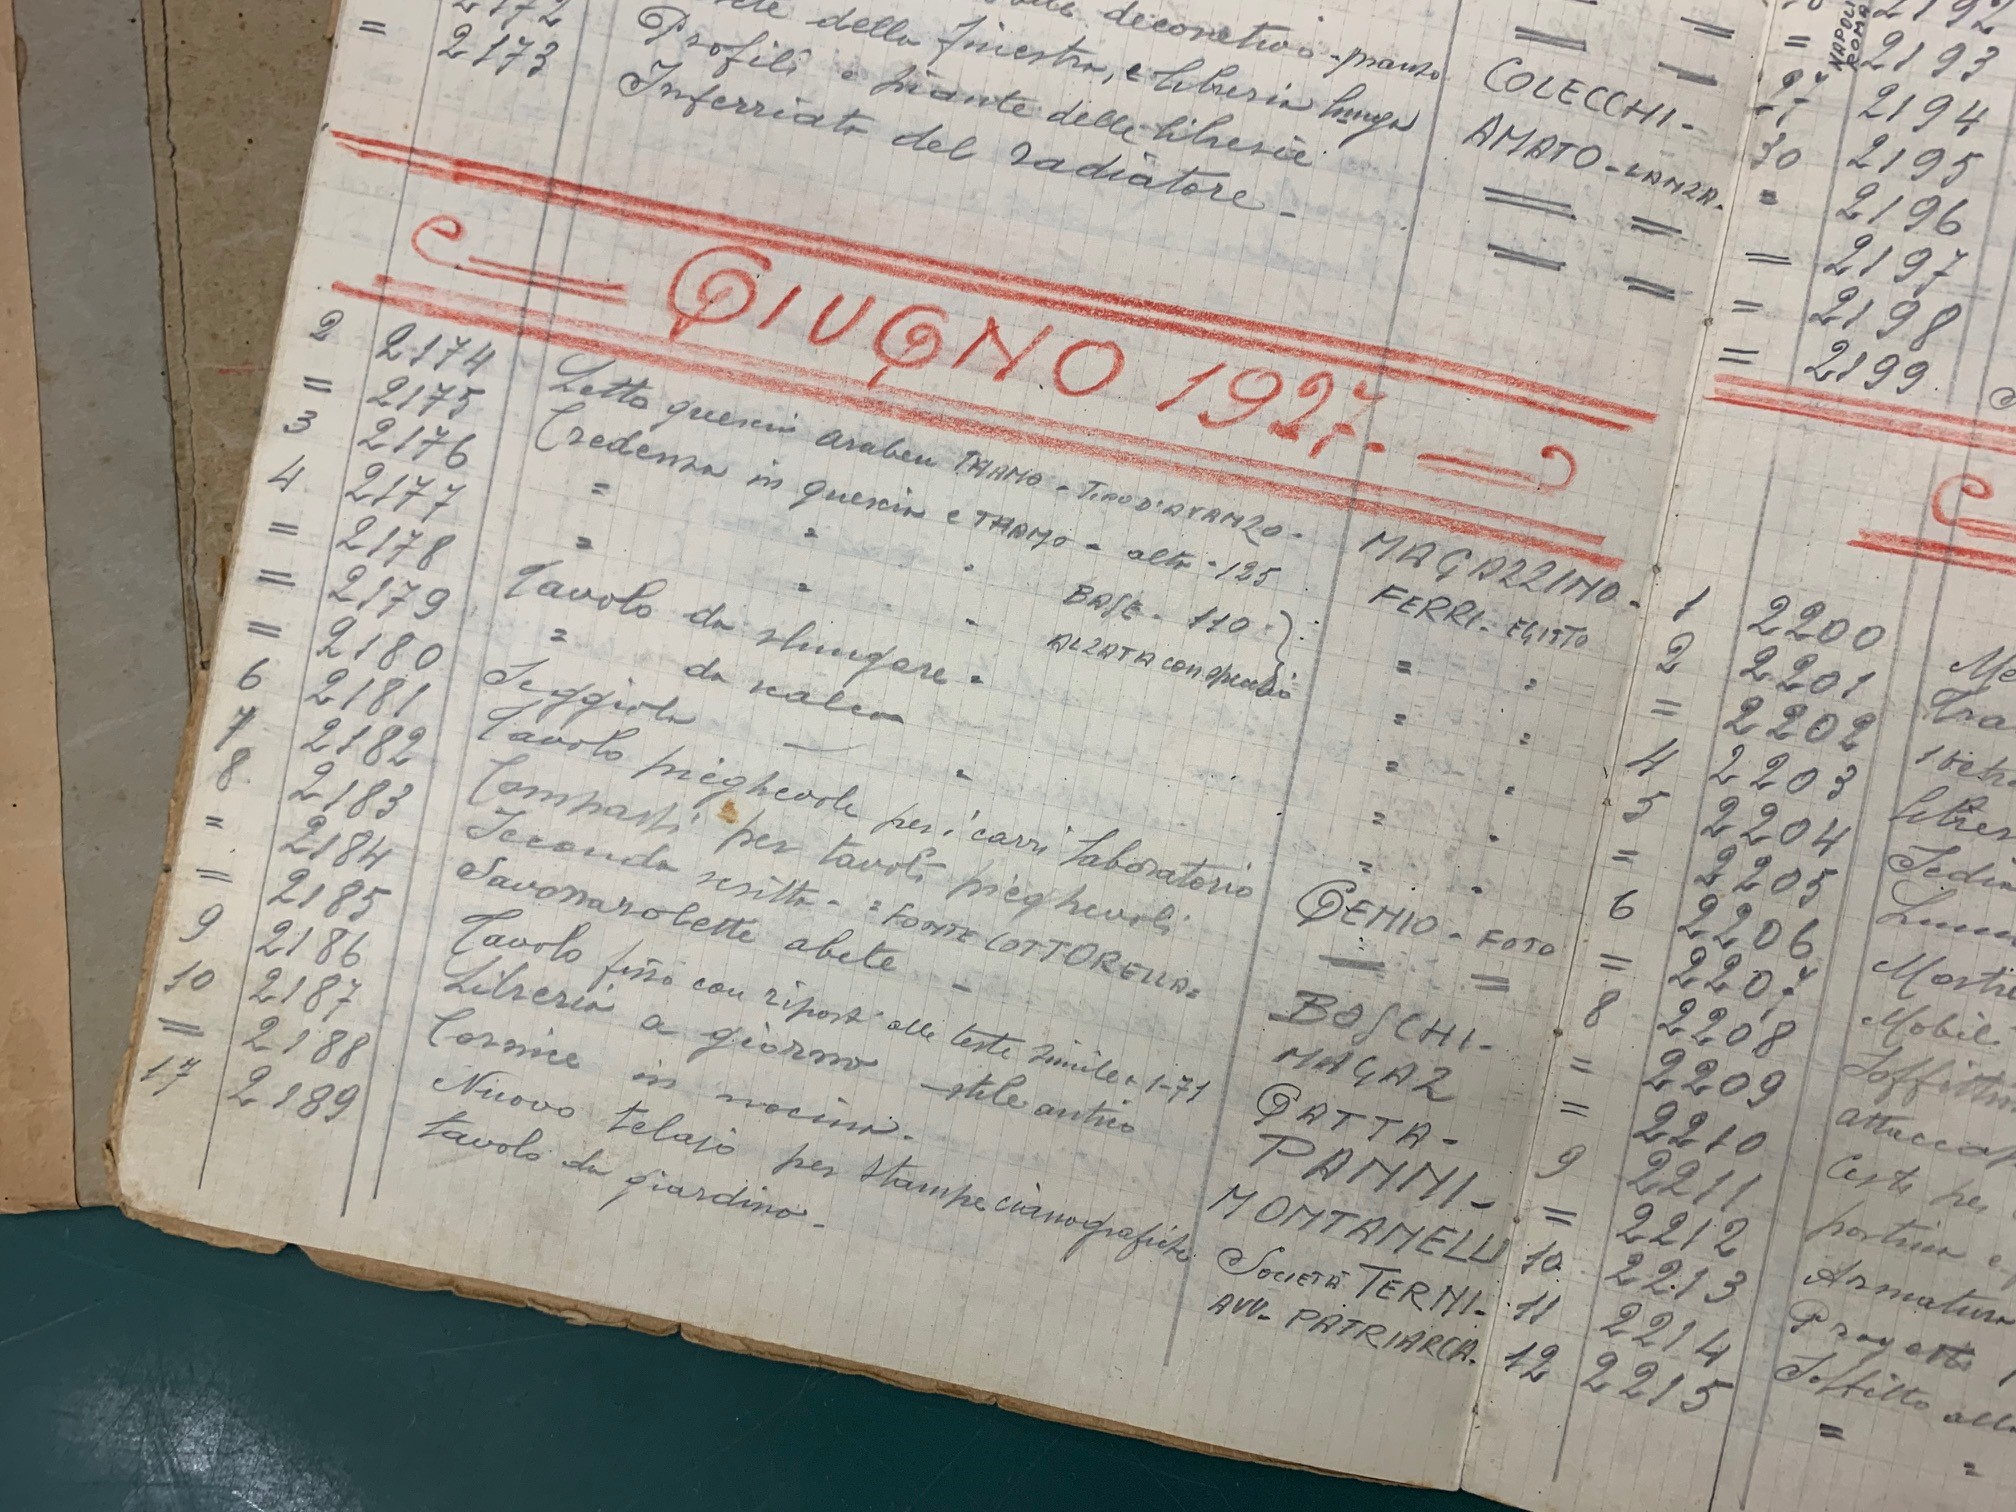 2172 decorativo - pranzo
= 2173 della finestra, e libreria lunga COLECCHI -
Profili e piante delle librerie AMATO - LANZA.
Inferriata del radiatore -
GIUGNO 1927 -
2 2174 Letto quercia THAMO - TIPO D'AVANZO - MAGAZZINO -
= 2175 Credenza in quercia e THAMO - alta - 125 FERRI - EGISTO
3 2176 = = BASE - 110 - = =
4 2177 = = ALZATA con specchio = =
= 2178 Tavolo da allungare - = =
= 2179 = da = =
= 2180 Seggiola = =
6 2181 Tavolo pieghevole per i carri laboratorio GENIO - FOTO
7 2182 Compassi per tavoli pieghevoli = =
8 2183 Seconda scritta - = FONTE COTTORELLA = BOSCHI -
= 2184 Savonarolette abete - MAGAZ
= 2185 Tavolo fisso con riposti alle teste simile a 1-71 GATTA -
9 2186 Libreria a giorno stile antico PANNI -
10 2187 Cornice in nocina - MONTANELLI
= 2188 Nuovo telajo per stampe cianografiche SOCIETÀ TERNI -
17 2189 tavolo da giardino - AVV - PATRIARCA.
NAPOLI
ROMA
2192
= 2193
27 2194
30 2195
= 2196
= 2197
= 2198
= 2199
1 2200
2 2201
= 2202
4 2203
5 2204
= 2205
6 2206
= 2207
8 2208 Mobil
= 2209
= 2210
9 2211
= 2212
10 2213 Armatura
11 2214
12 2215 Soffitto
= =